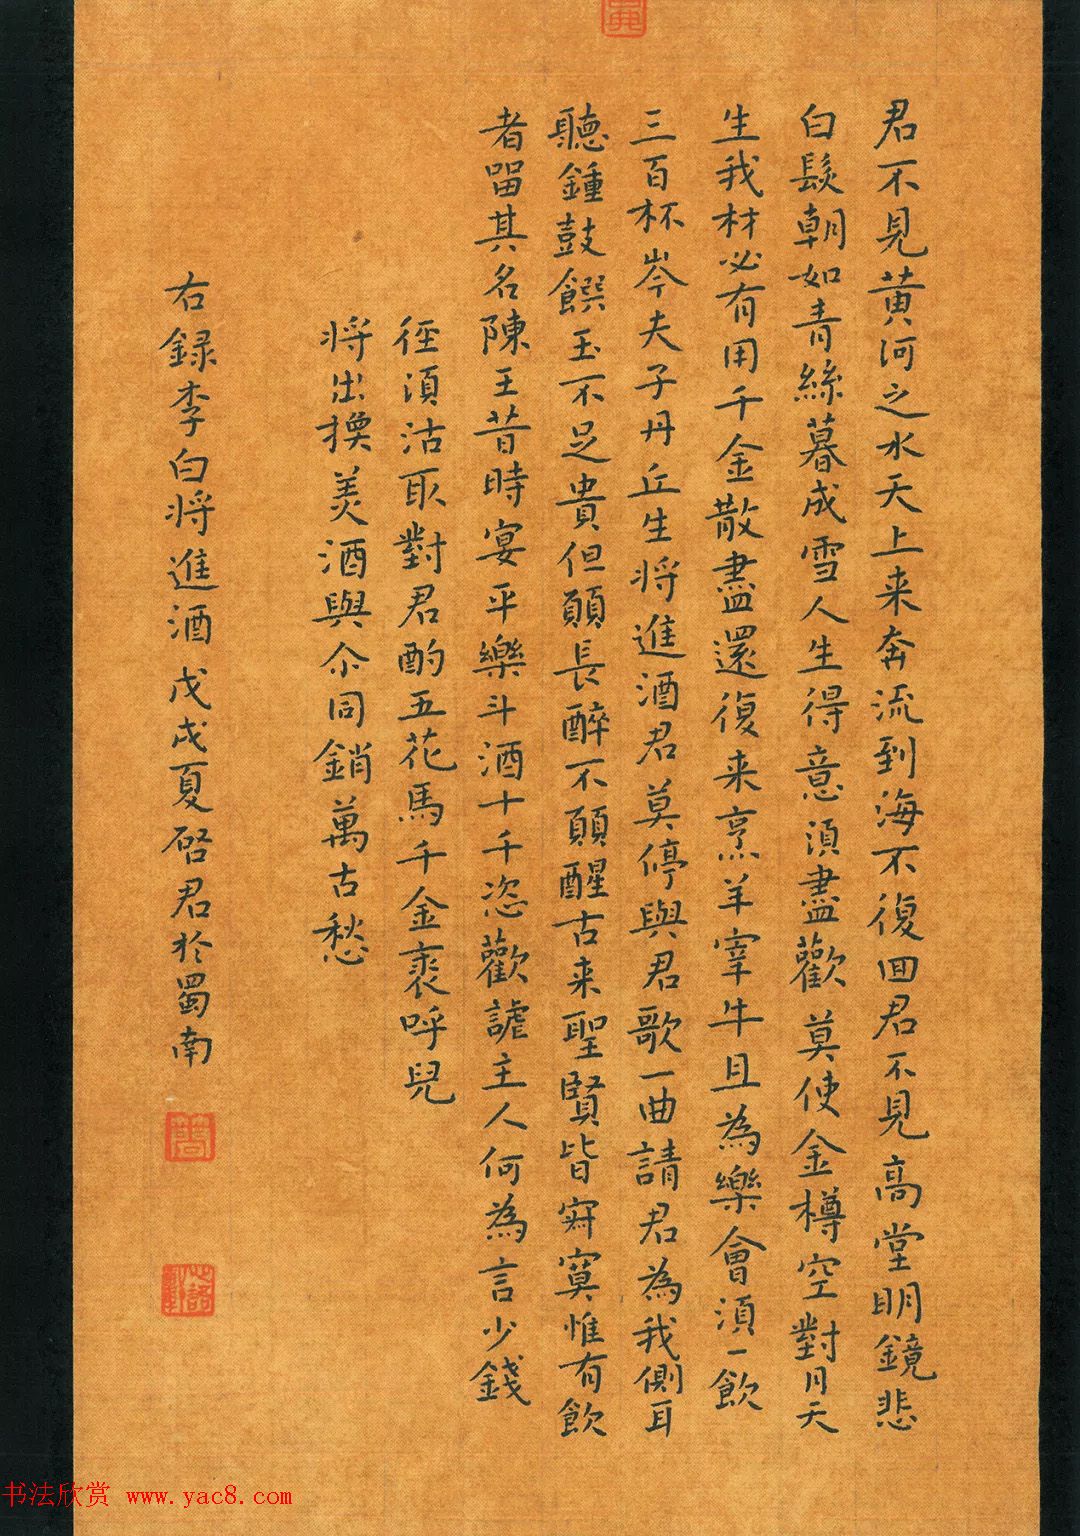 君不見黄河之水天上来奔流到海不復回君不見高堂明鏡悲
白髮朝如青絲暮成雪人生得意須盡歡莫使金樽空對月天
生我材必有用千金散盡還復来烹羊宰牛且為樂會須一飲
三百杯岑夫子丹丘生将進酒君莫停與君歌一曲請君為我側耳
聽鍾鼓饌玉不足貴但願長醉不願醒古来聖賢皆寂寞惟有飲
者留其名陳王昔時宴平樂斗酒十千恣歡謔主人何為言少錢
徑須沽取對君酌五花馬千金裘呼兒
将出換美酒與尒同銷萬古愁
右錄李白将進酒戊戌夏啓君於蜀南
书法欣赏 www.yac8.com